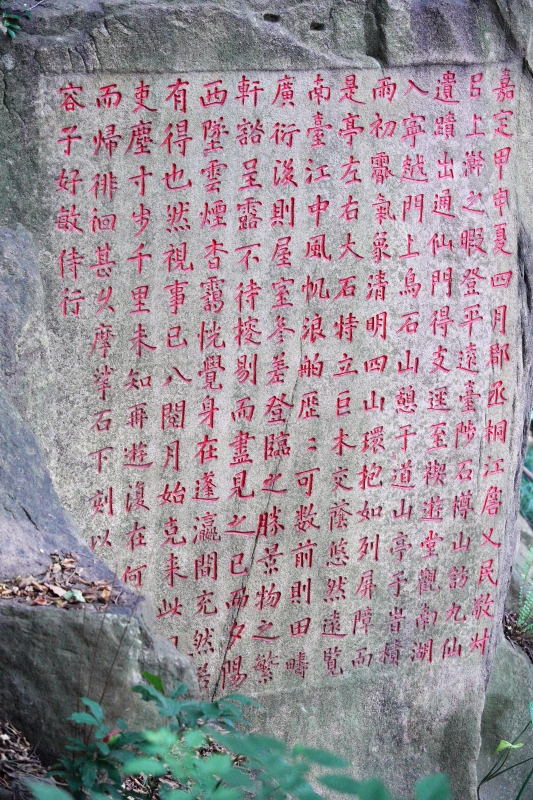 嘉定甲申夏四月郡丞桐江詹乂民敬叔
㠯上澣之暇登平遠臺陟石樽山訪九仙
遺蹟出通仙門得支逕至禊遊堂觀南湖
入寧越門上烏石山憩于道山亭于旹積
雨初霽氣象清明四山環抱如列屏障而
是亭左右大石特立巨木交蔭悠然遠覽
南臺江中風帆浪舶歷〻可数前則田疇
廣衍後則屋室參差登臨之勝景物之繁
軒豁呈露不待搜剔而盡見之已而夕陽
西墜雲煙杳靄恍覺身在蓬瀛間充然若
有得也然視事已八閱月始克来此
吏塵寸步千里未知再遊復在何
而歸徘徊甚久摩挲石下刻以
容子好敏侍行